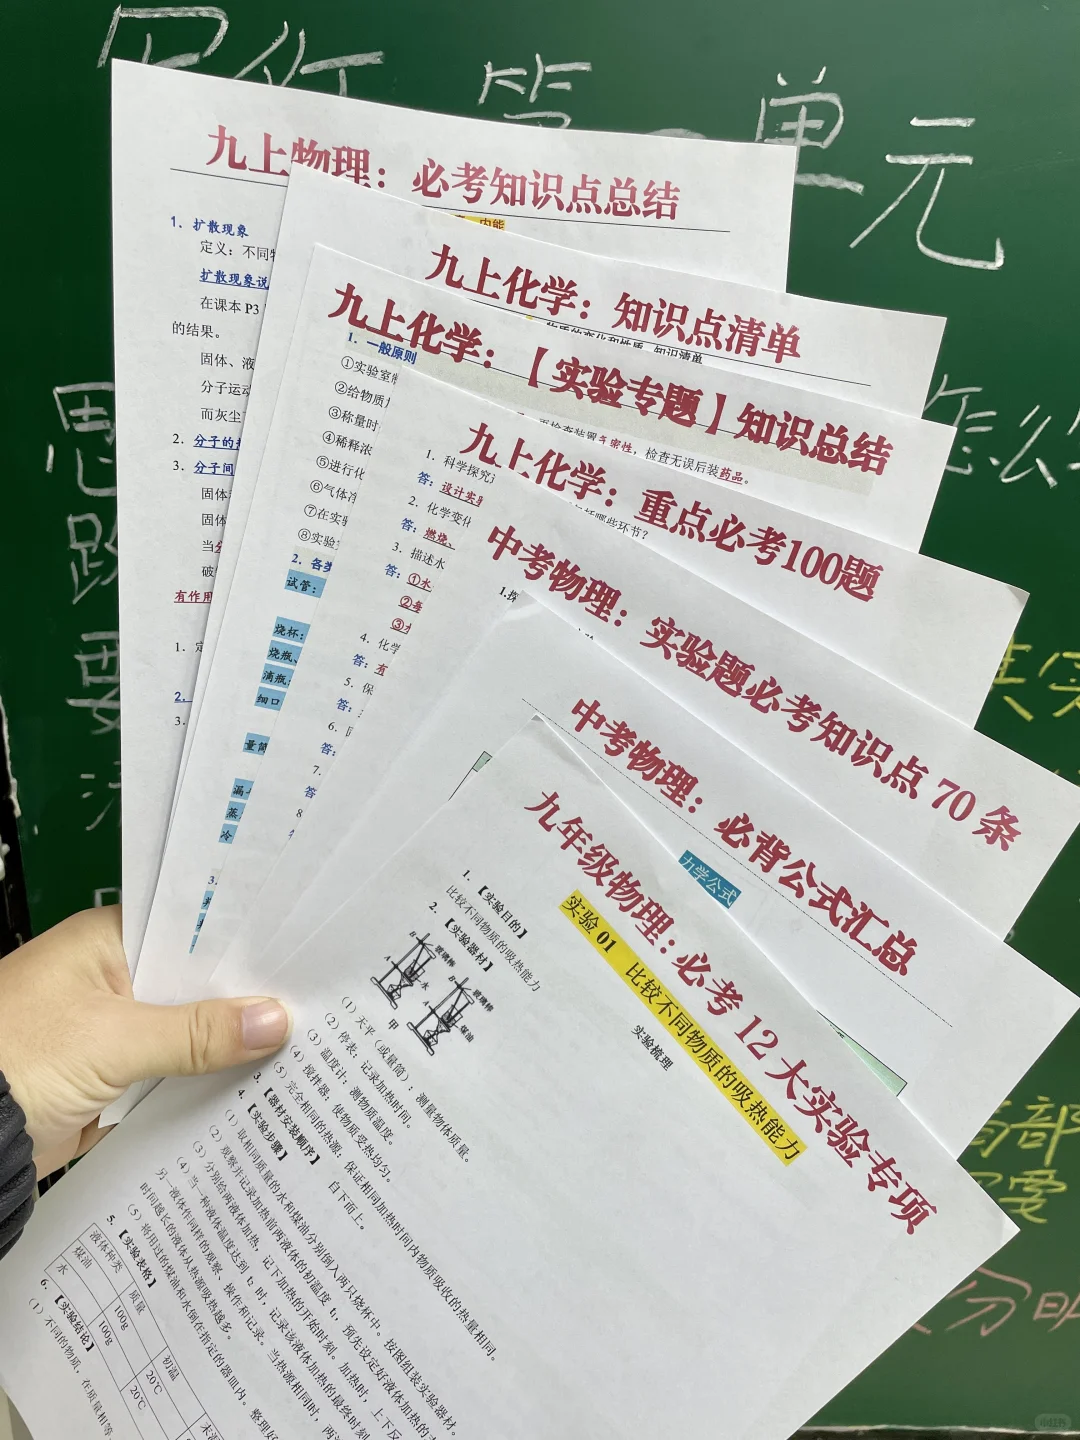 第一单元
思
路
要
怎么
其实
局部
需要
分明
九上物理：必考知识点总结
内能
1．扩散现象
定义：不同物
扩散现象说
在课本 P3
的结果。
固体、液
分子运动
而灰尘
2．分子的热
3．分子间
固体
固体
当分
破
有作用
1．定
2.
3.
九上化学：知识点清单
物质的变化和性质 知识清单
九上化学：【实验专题】知识总结
1．一般原则
①实验室制
②给物质加
③称量时
④稀释浓
⑤进行化
⑥气体净
⑦在实验
⑧实验
再检查装置气密性，检查无误后装药品。
2．各类
试管：
烧杯：
烧瓶、
滴瓶：
细口
量筒
漏
蒸
冷
3.
九上化学：重点必考100题
1．科学探究
括哪些环节？
答：设计实验
2．化学变化
答：燃烧、
3．描述水
答：①水
②每
③水
4．化学
答：有
5．保
答：
6.
答：
7.
答
8
中考物理：实验题必考知识点 70 条
1.探
中考物理：必背公式汇总
力学公式
九年级物理：必考 12 大实验专项
实验 01 比较不同物质的吸热能力
实验梳理
1．【实验目的】
比较不同物质的吸热能力
2．【实验器材】
B 玻璃棒
A 水
甲
B 玻璃棒
A 煤油
（1）天平（或量筒）：测量物体质量。
（2）停表：记录加热时间。
（3）温度计：测物质温度。
（4）搅拌器：使物质受热均匀。
（5）完全相同的热源：保证相同加热时间内物质吸收的热量相同。
3．【器材安装顺序】 自下而上。
4．【实验步骤】
（1）取相同质量的水和煤油分别倒入两只烧杯中。按图组装实验器材。
（2）观察并记录加热前两液体的初温度 t₁，预先设定好液体加热的
（3）分别给两液体加热，记下加热的开始时刻。加热时，上下反
（4）当一种液体温度达到 t₂ 时，记录该液体加热的最终时刻
另一液体作同样的观察、操作和记录。当热源相同时，两
时间越长的液体从热源吸热越多。
（5）将用过的煤油和水倒在指定的器皿内。整理好
5．【实验表格】
液体种类 质量 初温 末温
煤油 100g 20℃
水 100g 20℃
6．【实验结论】
（1）不同的物质，在质量相等
小红书